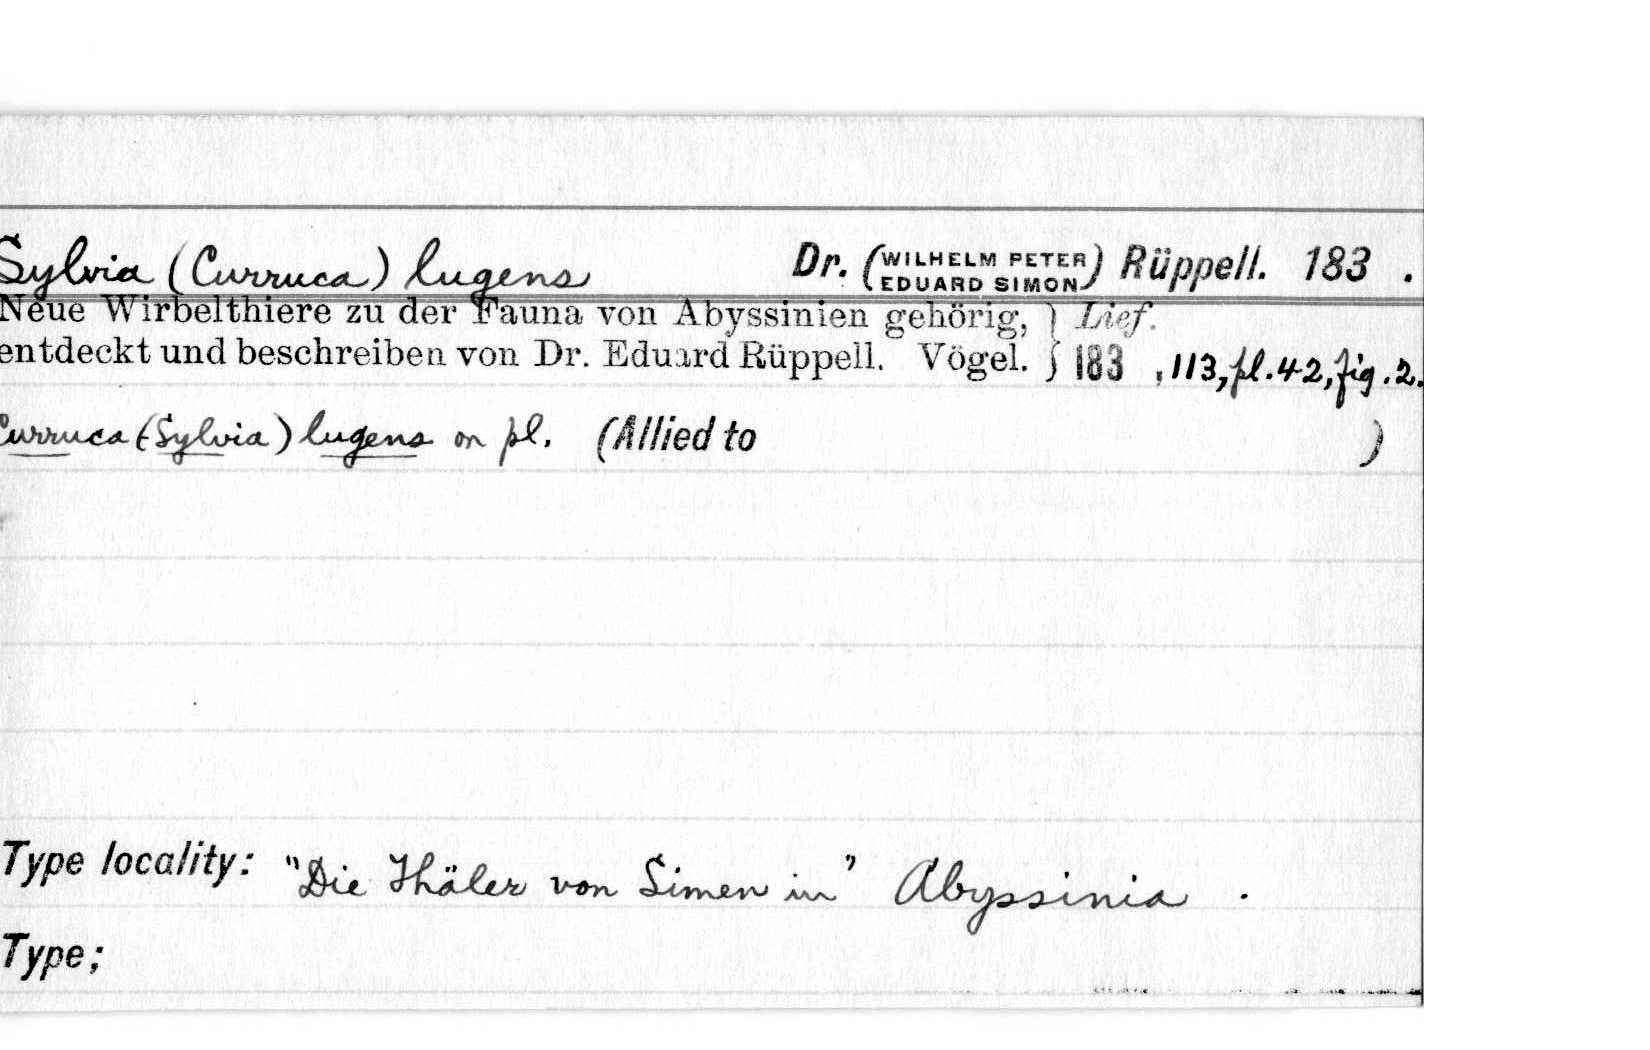 Sylvia (Curruca) lugens Dr. (WILHELM PETER EDUARD SIMON) Rüppell. 183 .
Neue Wirbelthiere zu der Fauna von Abyssinien gehörig, } Lief.
entdeckt und beschreiben von Dr. Eduard Rüppell. Vögel. } 183 , 113, pl. 42, fig. 2.
Curruca (Sylvia) lugens on pl. (Allied to )
Type locality: "Die Thäler von Simen in" Abyssinia .
Type;